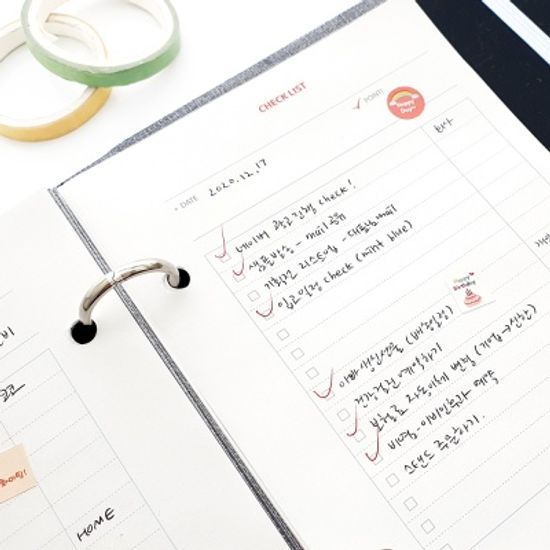 CHECK LIST
POINT!
Happy Day~
DATE 2020.12.17
네이버 광고진행 check!
샘플발송 - mail 공유
기획전 리스트업 - 대표님 mail
입고일정 check (mint blue)
Happy Birthday
아빠 생신선물 (배송일정)
건강검진 예약하기
보험료 자동이체 변경
예약
스탠드 주문하기.
HOME